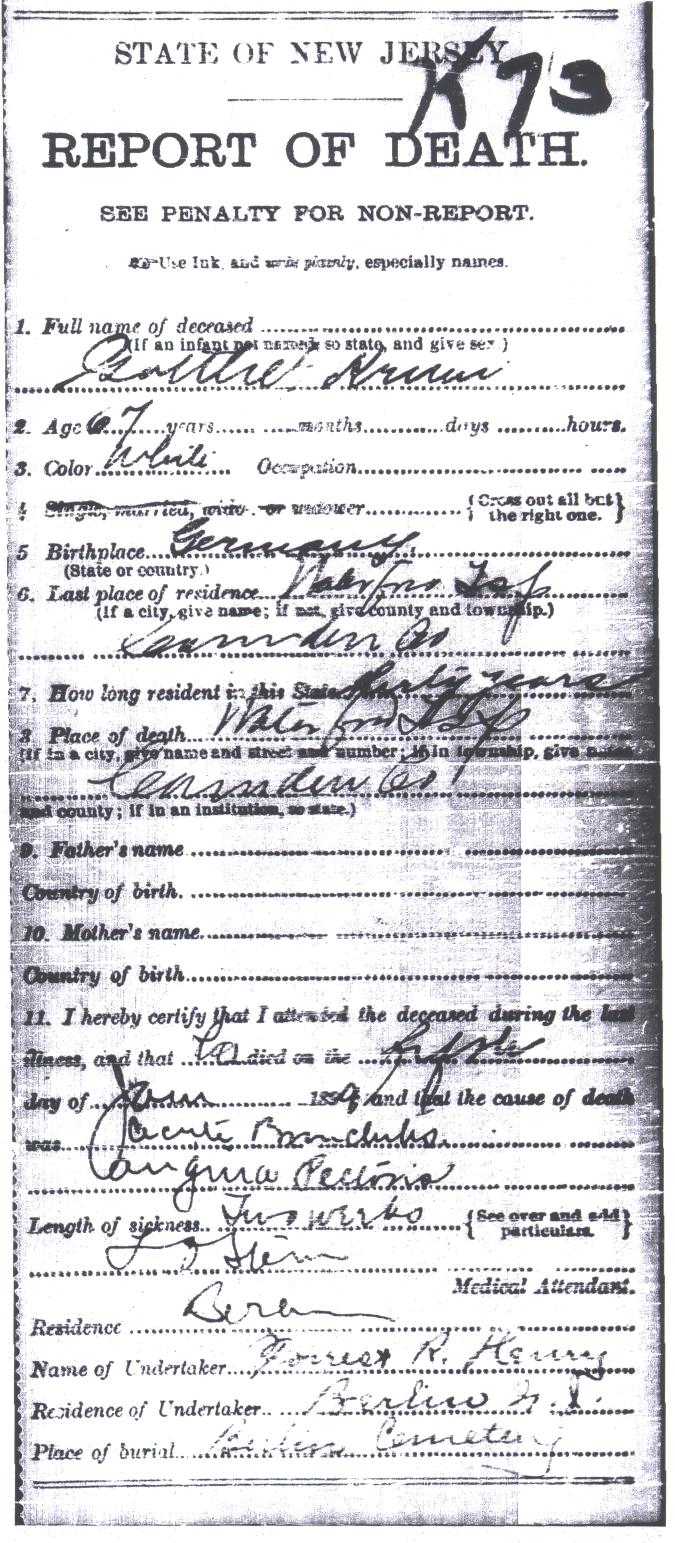 STATE OF NEW JERSEY
K 73
REPORT OF DEATH.
SEE PENALTY FOR NON-REPORT.
Use Ink, and write plainly, especially names.
1. Full name of deceased
(If an infant not named, so state, and give sex.)
2. Age 67 years months days hours.
3. Color White Occupation
4 Single, married, widow or widower {Cross out all but
the right one.}
5 Birthplace Germany
(State or country.)
6. Last place of residence Waterford Tsp
(If a city, give name; if not, give county and township.)
Camden Co
7. How long resident in this State years
8 Place of death Waterford Tsp
(If in a city, give name and street and number; if in township, give name
Camden Co
and county; if in an institution, so state.)
9. Father's name
Country of birth.
10. Mother's name
Country of birth
11. I hereby certify that I attended the deceased during the last
illness, and that died on the
day of 189 and that the cause of death
was Acute Bronchitis
angina Pectoris
Length of sickness Two weeks {See over and add
particulars.}
Stem
Medical Attendant.
Residence
Name of Undertaker Forrest R. Henry
Residence of Undertaker Berlin N.J.
Place of burial Berlin Cemetery